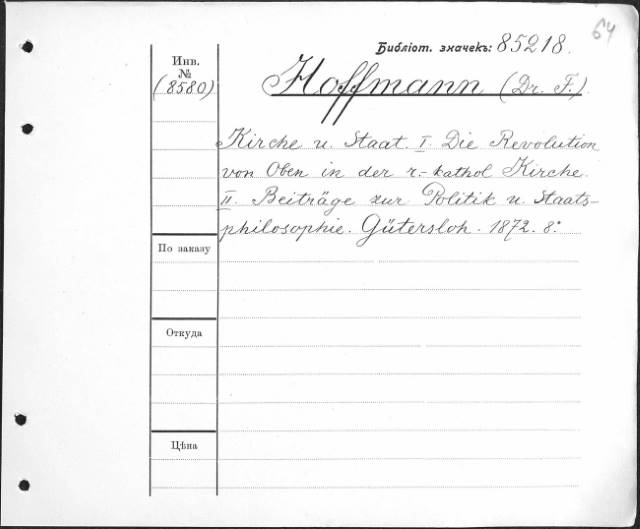 64
Библіот. значекъ: 85218.
Инв.
№
(8580)
Hoffmann (Dr. F.)
Kirche u. Staat. I. Die Revolution
von Oben in der r.-kathol Kirche.
II. Beiträge zur Politik u. Staats-
philosophie. Gütersloh. 1872. 8.°
По заказу
Откуда
Цѣна